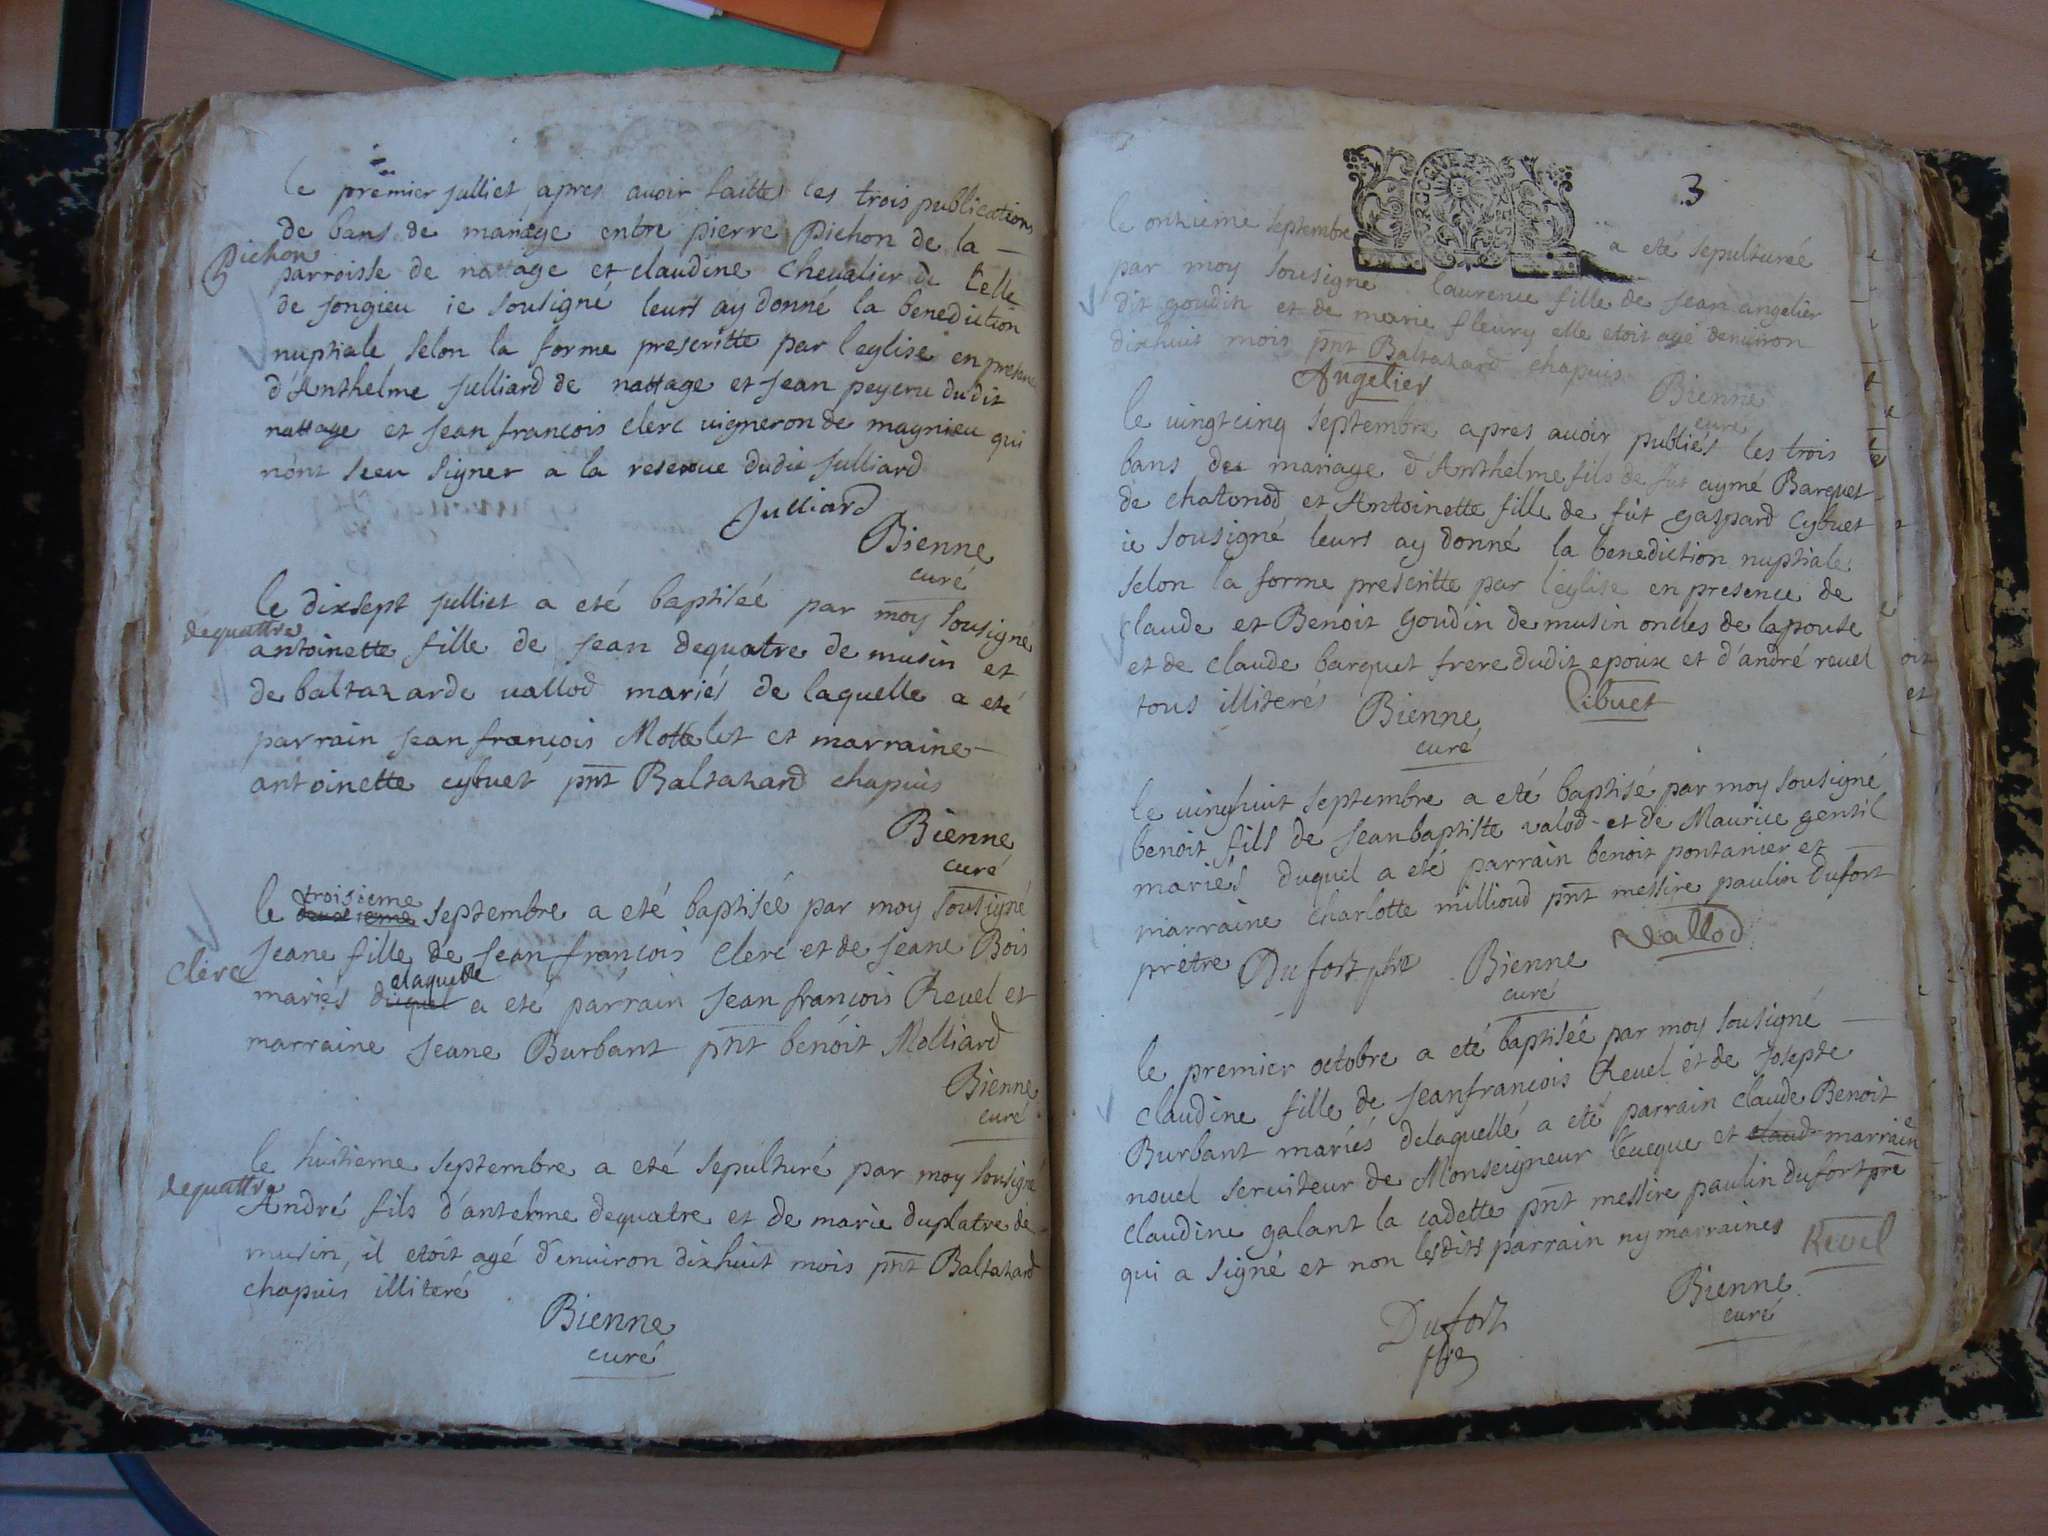 le premier julliet apres avoir faittes les trois publications
de bans de mariege entre pierre Pichon de la
Pichon
parroisse de nattage et claudine chevalier de celle
de songieu ie sousigné leurs ay donné la benediction
nuptiale selon la forme prescritte par leglise en presence
d'Anthelme julliard de nattage et jean peyeru dudit
nattage et jean francois clerc vigneron de magnieu qui
nont sceu signer a la reserve dudit julliard
Julliard
Bienne
curé
le dixsept julliet a eté baptiseé par moy sousigné
dequattre
antoinette fille de jean dequatre de musin et
de baltazarde vallod mariés de laquelle a eté
parrain jean françois Mottelet et marraine
antoinette cybuet pnt Baltazard chapuis
Bienne
curé
le troisieme deuxieme septembre a eté baptiseé par moy sousigné
Clerc
jeane fille de jean françois clerc et de jeane Bois
mariés duquel elaquelle a eté parrain jean françois Revel et
marraine jeane Burbant pnt benoit Molliard
Bienne
curé
le huitieme septembre a eté sepulturé par moy sousigné
dequattre
André fils d'antelme dequatre et de marie duplatre de
musin, il etoit agé d'environ dixhuit mois pnt Baltazard
chapuis illiteré
Bienne
curé
3
le onzieme septembre a eté sepultureé
par moy sousigné laurence fille de jean angelier
dit goudin et de marie fleury elle etoit agé denviron
dixhuit mois pnt Baltazard chapuis
Angelier
Bienne
curé
le vingtcinq septembre apres avoir publiés les trois
bans de mariage d'Anthelme fils de fut aymé Barquet
de chatonod et Antoinette fille de fut gaspard Cybuet
ie sousigné leurs ay donné la benediction nuptiale
selon la forme prescritte par léglise en presence de
claude et Benoit goudin de musin oncles de lapouse
et de claude barquet frere dudit epoux et d'andré revel
tous illiterés
Bienne
curé
Cibuet
le vinghuit septembre a eté baptisé par moy sousigné
benoit fils de jeanbaptiste valod et de Maurice gentil
mariés duquel a eté parrain benoit pontanier et
marraine charlotte millioud pnt messire paulin dufort
prétre Dufort ptre
Bienne
curé
Vallod
le premier octobre a eté baptiseé par moy sousigné
claudine fille de jeanfrançois Revel et de josepte
Burbant mariés delaquellé a eté parrain claude Benoit
novel serviteur de Monseigneur lévéque et claud marraine
claudine galant la cadette pnt messire paulin dufort pre
qui a signé et non lesdits parrain ny marraines
Revel
Bienne
curé
Dufort
ptre